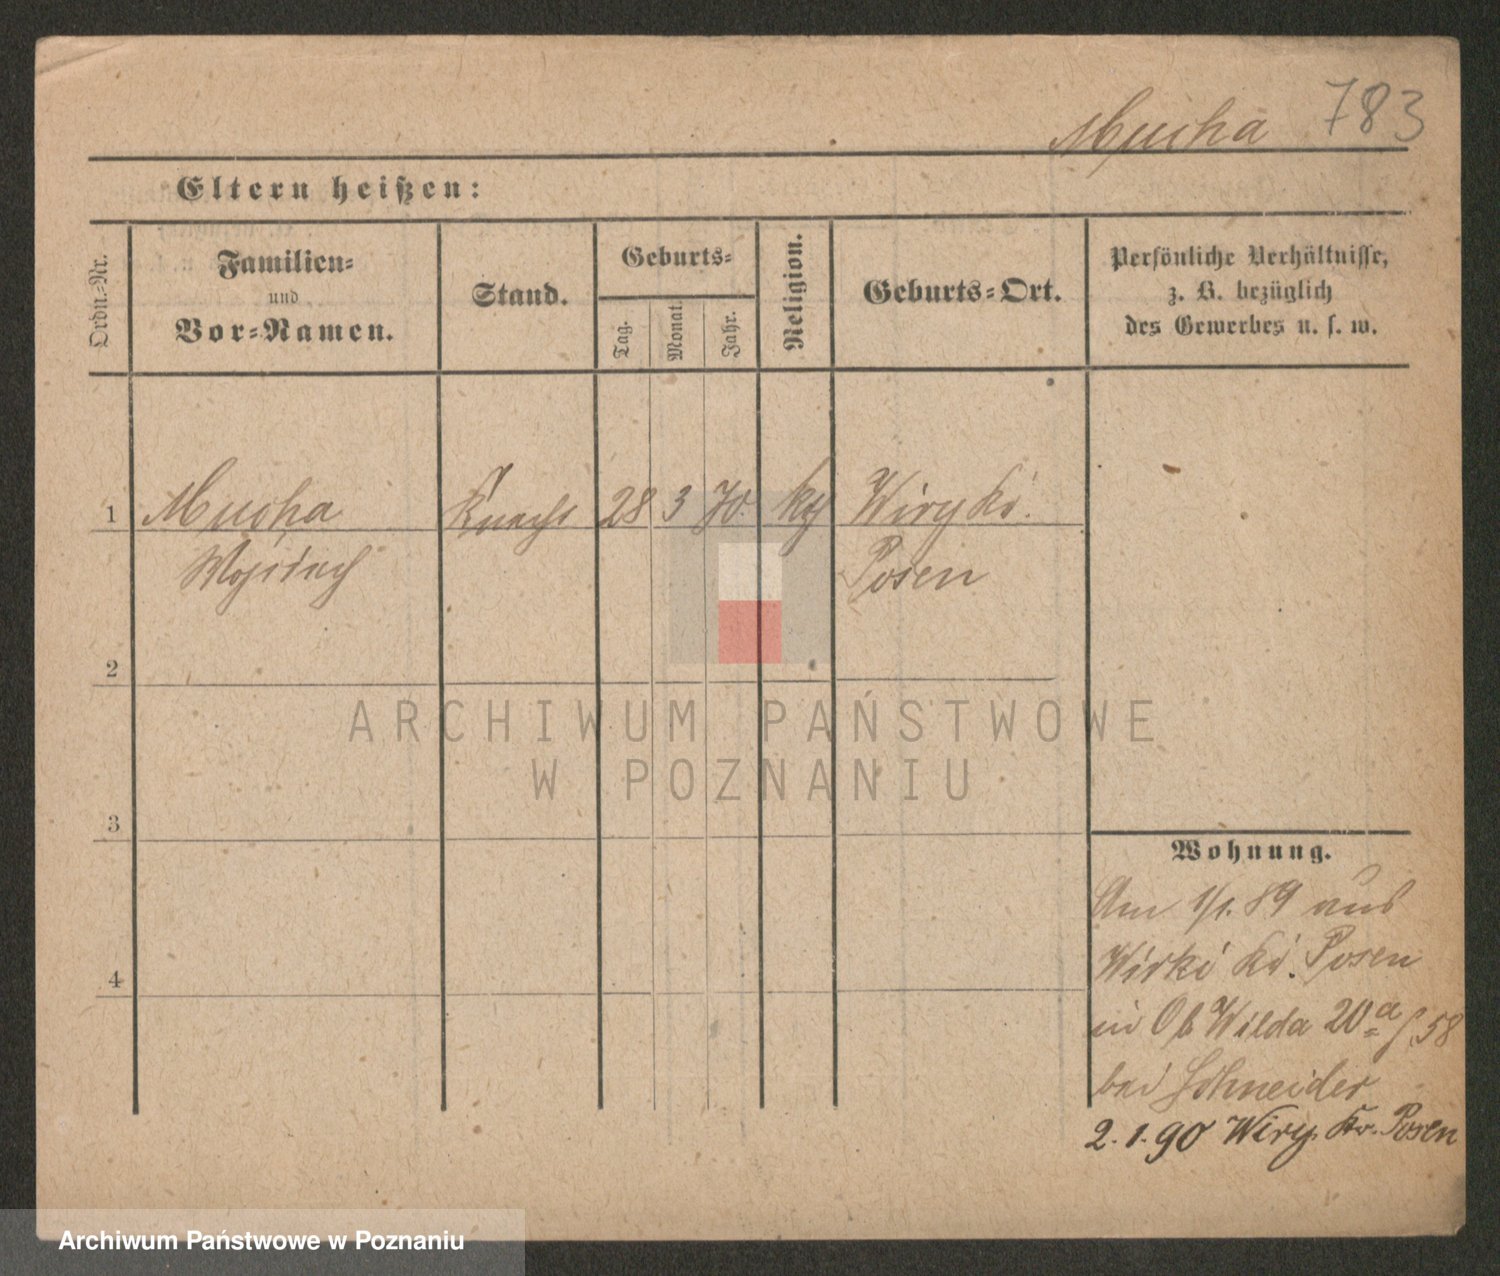 Mucha 783
Eltern heißen:
Ordn.-Nr.
Familien-
und
Vor-Namen.
Stand.
Geburts-
Tag.
Monat.
Jahr.
Religion.
Geburts-Ort.
Persönliche Verhältnisse,
z. B. bezüglich
des Gewerbes u. s. w.
1 Mucha Knecht 28 3 70 kt Wiry Kr.
Wojciech Posen
2
ARCHIWUM PAŃSTWOWE
W POZNANIU
3
Wohnung.
Am 1/1. 89 aus
Wirki Kr. Posen
in Ob Wilda 20a 58
bei Schneider
4
2. 1. 90 Wiry. Kr. Posen
Archiwum Państwowe w Poznaniu